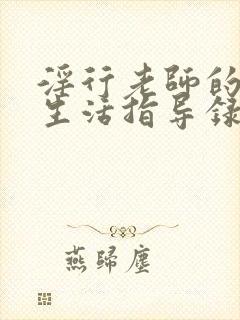 淫行老師的
生活指导錄
燕歸塵